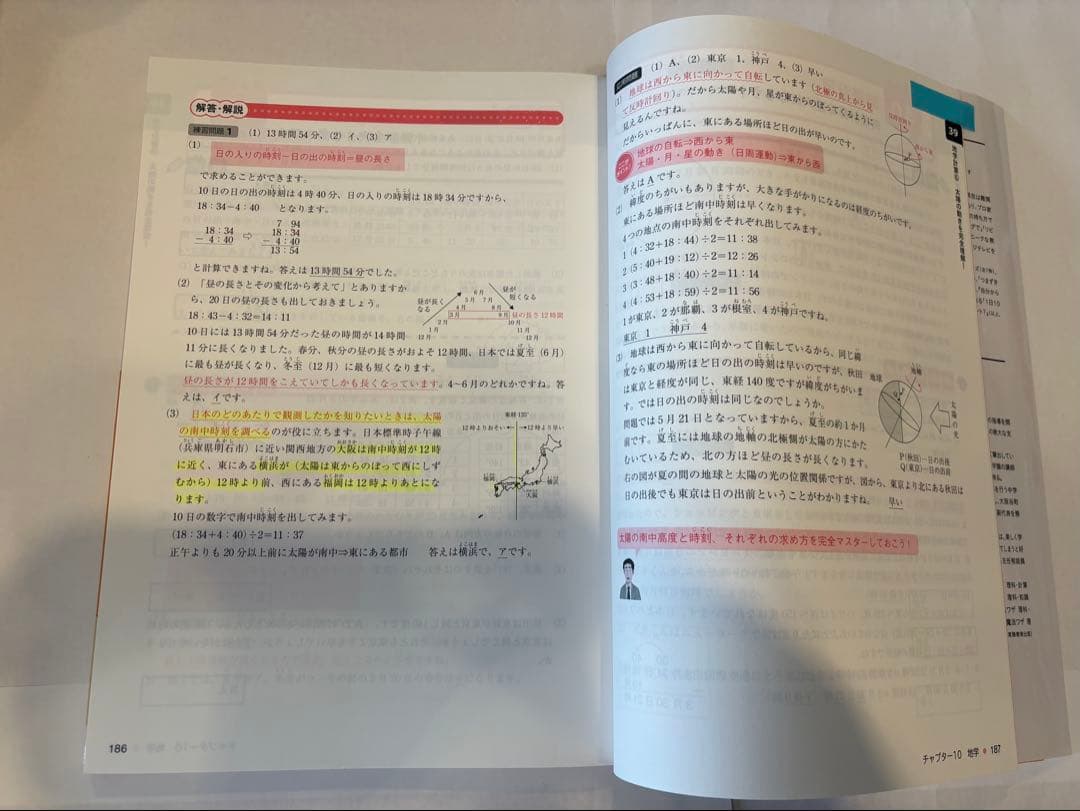 解答・解説
練習問題1 (1) 13時間54分、(2) イ、(3) ア
(1)
日の入りの時刻－日の出の時刻＝昼の長さ
で求めることができます。
10日の日の出の時刻は4時40分、日の入りの時刻は18時34分ですから、
18:34－4:40 となります。
7 94
18:34 ⇨ 18:34
－ 4:40 － 4:40
13:54
と計算できますね。答えは13時間54分でした。
(2) 「昼の長さとその変化から考えて」とありますか
ら、20日の昼の長さも出しておきましょう。
18:43－4:32＝14:11
10日には13時間54分だった昼の時間が14時間
11分に長くなりました。春分、秋分の昼の長さがおよそ12時間、日本では夏至（6月）
に最も昼が長くなり、冬至（12月）に最も短くなります。
昼の長さが12時間をこえていてしかも長くなっています。4~6月のどれかですね。答
えは、イです。
昼が長く
なる
昼が
短くなる
6月
5月 7月
4月 8月
3月 9月 昼の長さ12時間
2月 10月
1月 11月
12月 12月
(3) 日本のどのあたりで観測したかを知りたいときは、太陽
の南中時刻を調べるのが役に立ちます。日本標準時子午線
（兵庫県明石市）に近い関西地方の大阪は南中時刻が12時
に近く、東にある横浜が（太陽は東からのぼって西にしず
むから）12時より前、西にある福岡は12時よりあとにな
ります。
10日の数字で南中時刻を出してみます。
(18:34＋4:40)÷2＝11:37
正午よりも20分以上前に太陽が南中⇒東にある都市 答えは横浜で、アです。
東経135°
12時よりおそい 12時より早い
福岡 大阪 横浜
186 チャプター10 地学
(1) A、(2) 東京 1、神戸 4、(3) 早い
(1) 地球は西から東に向かって自転しています（北極の真上から見
て反時計回り）。だから太陽や月、星が東からのぼってくるように
見えるんですね。
だからいっぱんに、東にある場所ほど日の出が早いのです。
地球の自転⇒西から東
太陽・月・星の動き（日周運動）⇒東から西
答えはAです。
(2) 緯度のちがいもありますが、大きな手がかりになるのは経度のちがいです。
東にある場所ほど南中時刻は早くなります。
4つの地点の南中時刻をそれぞれ出してみます。
1 (4:32＋18:44)÷2＝11:38
2 (5:40＋19:12)÷2＝12:26
3 (3:48＋18:40)÷2＝11:14
4 (4:53＋18:59)÷2＝11:56
1が東京、2が那覇、3が根室、4が神戸ですね。
東京 1 神戸 4
(3) 地球は西から東に向かって自転しているから、同じ緯
度なら東の場所ほど日の出の時刻は早いのですが、秋田
は東京と経度が同じ、東経140度ですが緯度がちがいま
す。では日の出の時刻は同じなのでしょうか。
問題では5月21日となっていますから、夏至の約1か月
前です。夏至には地球の地軸の北極側が太陽の方にかた
むいているため、北の方ほど昼の長さが長くなります。
右の図が夏の間の地球と太陽の光の位置関係ですが、図から、東京より北にある秋田は
日の出後でも東京は日の出前ということがわかりますね。 早い
地球 地軸
太陽の光
P(秋田)―日の出後
Q(東京)―日の出前
太陽の南中高度と時刻、それぞれの求め方を完全マスターしておこう！
39
地学計算⑥ 太陽の動きを完全理解！
チャプター10 地学 187